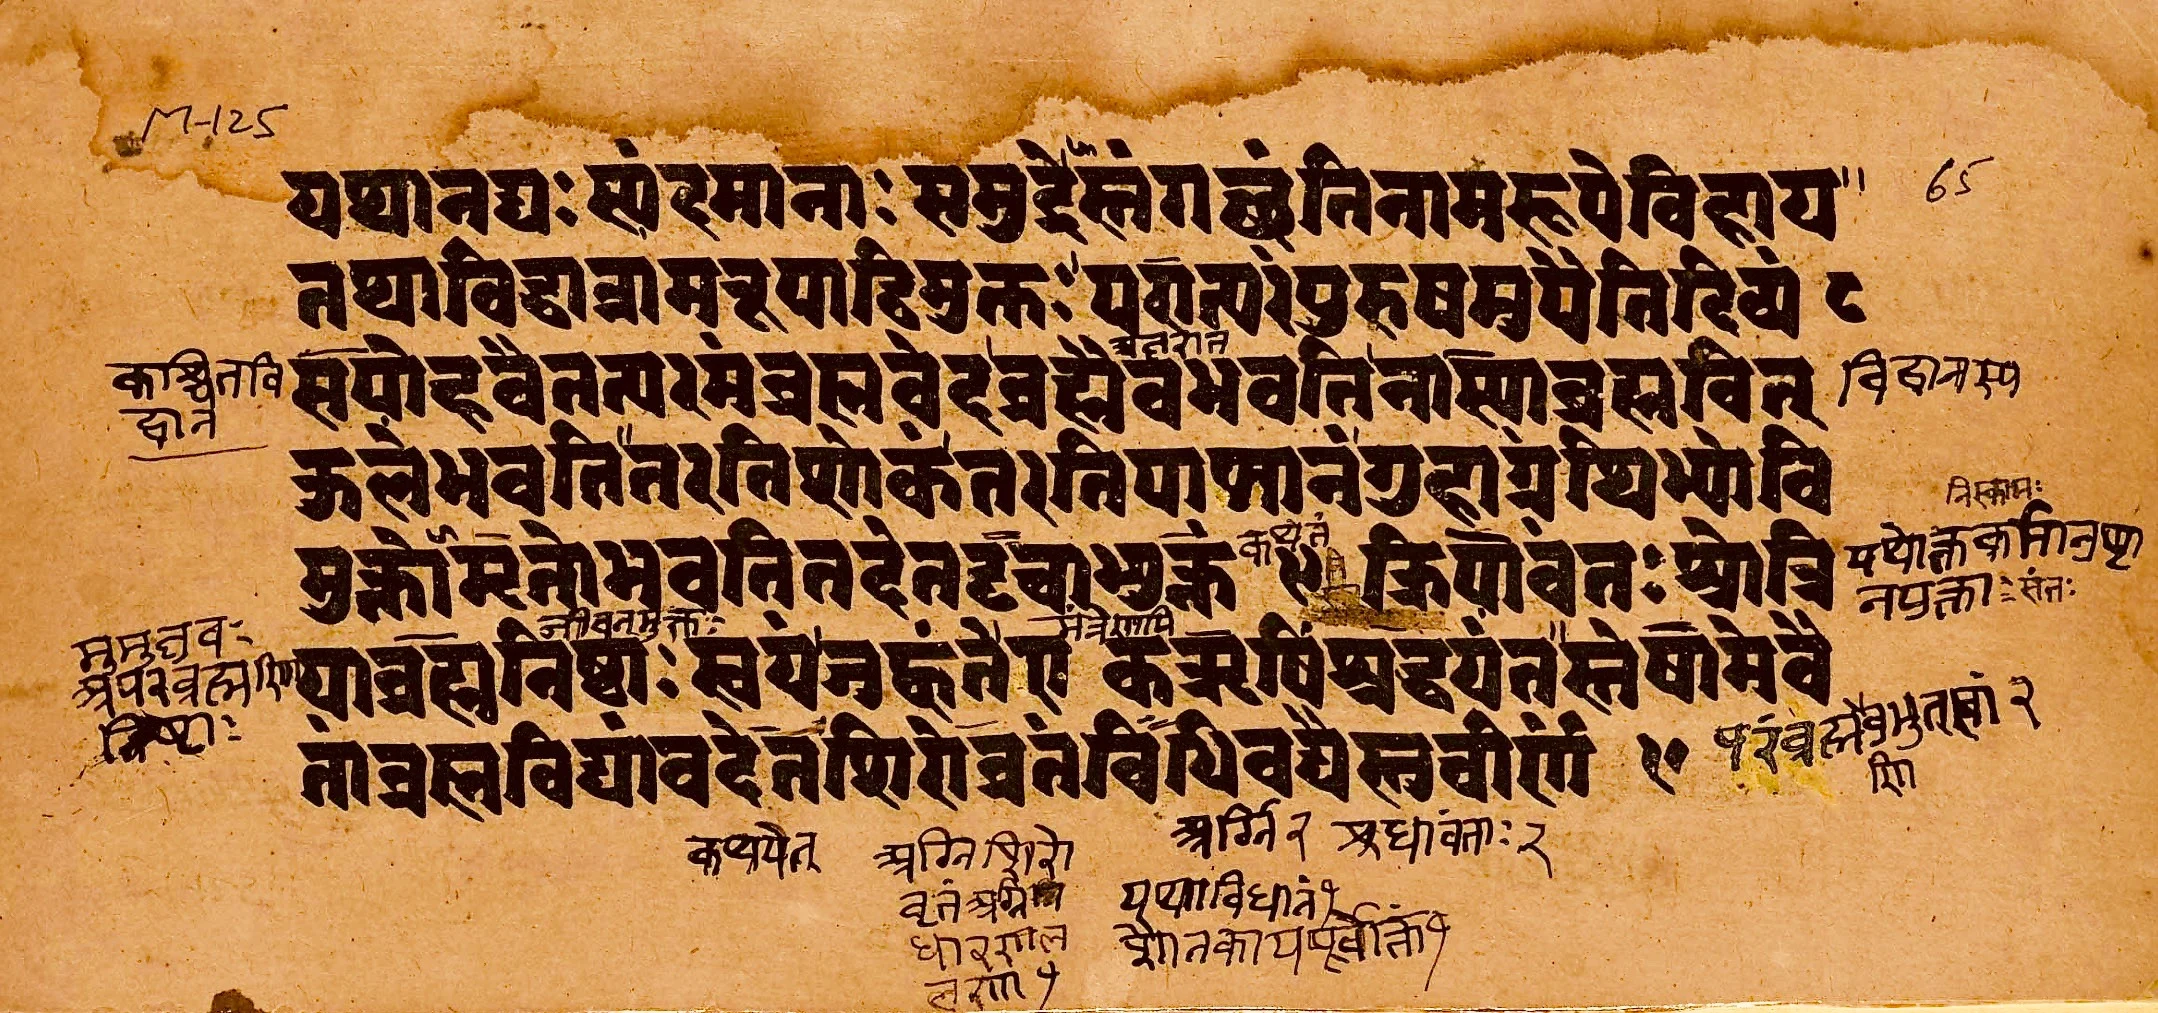 M-125
65
यथानद्यः स्यंदमानाः समुद्रेस्तंगच्छंतिनामरूपेविहाय
तथाविद्वान्नामरूपाद्विमुक्तः परात्परंपुरुषमुपैतिदिव्यं ८
सयोहवैतत्परमंब्रह्मवेदब्रह्मैवभवतिनास्याब्रह्मवित्
कुलेभवतितरतिशोकंतरतिपाप्मानंगुहाग्रंथिभ्योवि
मुक्तोमृतोभवतितदेतदृचाभ्युक्तं ९ क्रियावंतः श्रोत्रि
याब्रह्मनिष्ठाः स्वयंजुह्वंतेए कऋषिंश्रद्धयंतस्तेषामेवै
तांब्रह्मविद्यांवदेतशिरोव्रतंविधिवद्यैस्तुचीर्णं १०
कश्चितवि
द्वान
विद्वानस्य
कथितं
निस्कामः
यथोक्तकर्मानुष्ठा
नयुक्ताः संतः
जीवन्मुक्तः
मंत्रेणापि
मुमुक्षवः
अपरब्रह्मणि
निष्ठाः
परंब्रह्मैवभुत्सूनां २
कथयेत्
अग्निशिरो
वृतं
धारणल
क्षणं १
अग्निं २ श्रुधावंताः २
यथाविधानं १